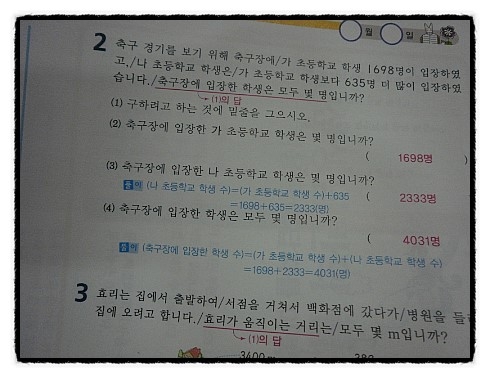 월 일
2 축구 경기를 보기 위해 축구장에/가 초등학교 학생 1698명이 입장하였
고,/나 초등학교 학생은/가 초등학교 학생보다 635명 더 많이 입장하였
습니다./축구장에 입장한 학생은 모두 몇 명입니까?
(1)의 답
(1) 구하려고 하는 것에 밑줄을 그으시오.
(2) 축구장에 입장한 가 초등학교 학생은 몇 명입니까?
( 1698명 )
(3) 축구장에 입장한 나 초등학교 학생은 몇 명입니까?
풀이 (나 초등학교 학생 수)=(가 초등학교 학생 수)+635 ( 2333명
=1698+635=2333(명)
(4) 축구장에 입장한 학생은 모두 몇 명입니까?
( 4031명
풀이 (축구장에 입장한 학생 수)=(가 초등학교 학생 수)+(나 초등학교 학생 수)
=1698+2333=4031(명)
3 효리는 집에서 출발하여/서점을 거쳐서 백화점에 갔다가/병원을 들
집에 오려고 합니다./효리가 움직이는 거리는/모두 몇 m입니까?
(1)의 답